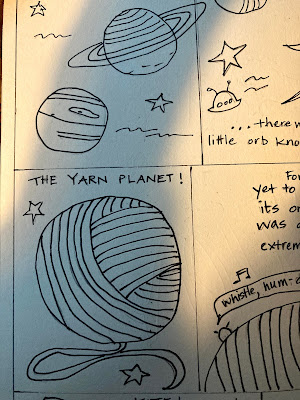 ...there w
little orb kno
THE YARN PLANET!
For
yet to
its or
was a
extrem
whistle, hum: